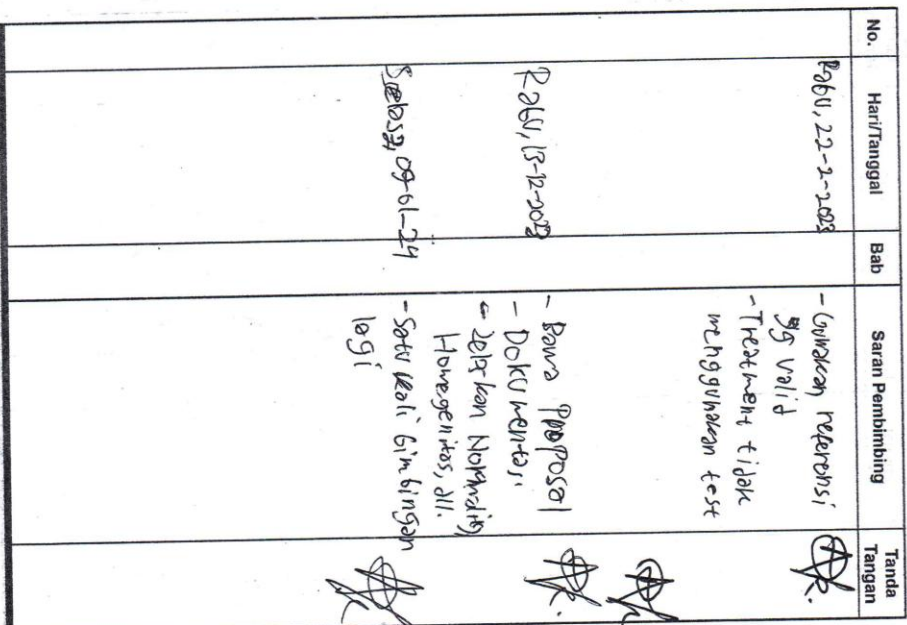 No. Hari/Tanggal Bab Saran Pembimbing Tanda Tangan
Rabu, 22-2-2023
- Gunakan referensi
yg valid
- Treatment tidak
menggunakan test
Rabu, 13-12-2023
- Bawa Proposal
- Dokumentasi
- Jelaskan Normalitas,
Homogenitas, dll.
Selasa, 09-01-24
- Satu kali bimbingan
lagi